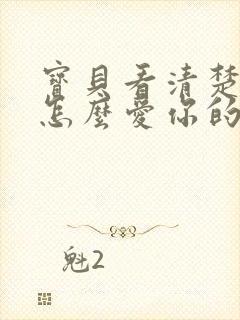 寶貝看清楚
怎麼愛你的
魁2